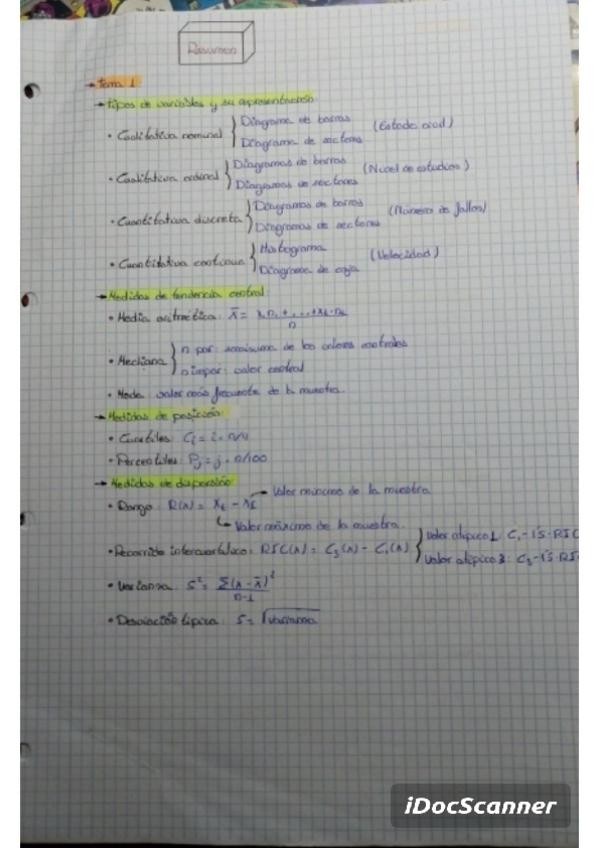 Resumen
→ Tema 1
→ Tipos de variables y su representación:
• Cualitativa nominal { Diagrama de barras (Estado civil)
Diagrama de sectores
• Cualitativa ordinal { Diagramas de barras (Nivel de estudios)
Diagramas de sectores
• Cuantitativa discreta { Diagramas de barras (Número de fallos)
Diagramas de sectores
• Cuantitativa continua { Histograma (Velocidad)
Diagrama de caja
→ Medidas de tendencia central:
• Media aritmética: x̄ = x₁n₁ + ... + xₖ·nₖ / n
• Mediana { n par: semisuma de los valores centrales
n impar: valor central
• Moda: valor más frecuente de la muestra.
→ Medidas de posición:
• Cuartiles: Cᵢ = i · n/4
• Percentiles: Pⱼ = j · n/100
→ Medidas de dispersión:
• Rango: R(x) = xₖ - x₁ → Valor mínimo de la muestra.
↳ Valor máximo de la muestra.
• Recorrido intercuartílico: RIC(x) = C₃(x) - C₁(x) { Valor atípico 1: C₁ - 1'5 · RIC
Valor atípico 3: C₃ - 1'5 · RI
• Varianza: s² = Σ(x - x̄)² / n-1
• Desviación típica: s = √varianza
iDocScanner